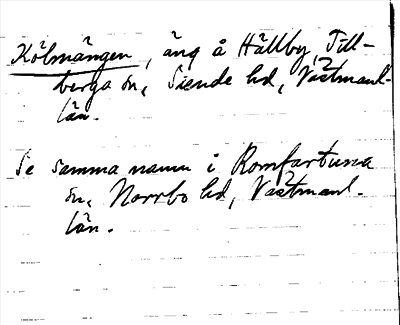 Kölmängen, äng å Hällby, Till-
berga sn, Siende hd, Västmanl-
län.
Se samma namn i Romfartuna
sn, Norrbo hd, Västmanl-
län.